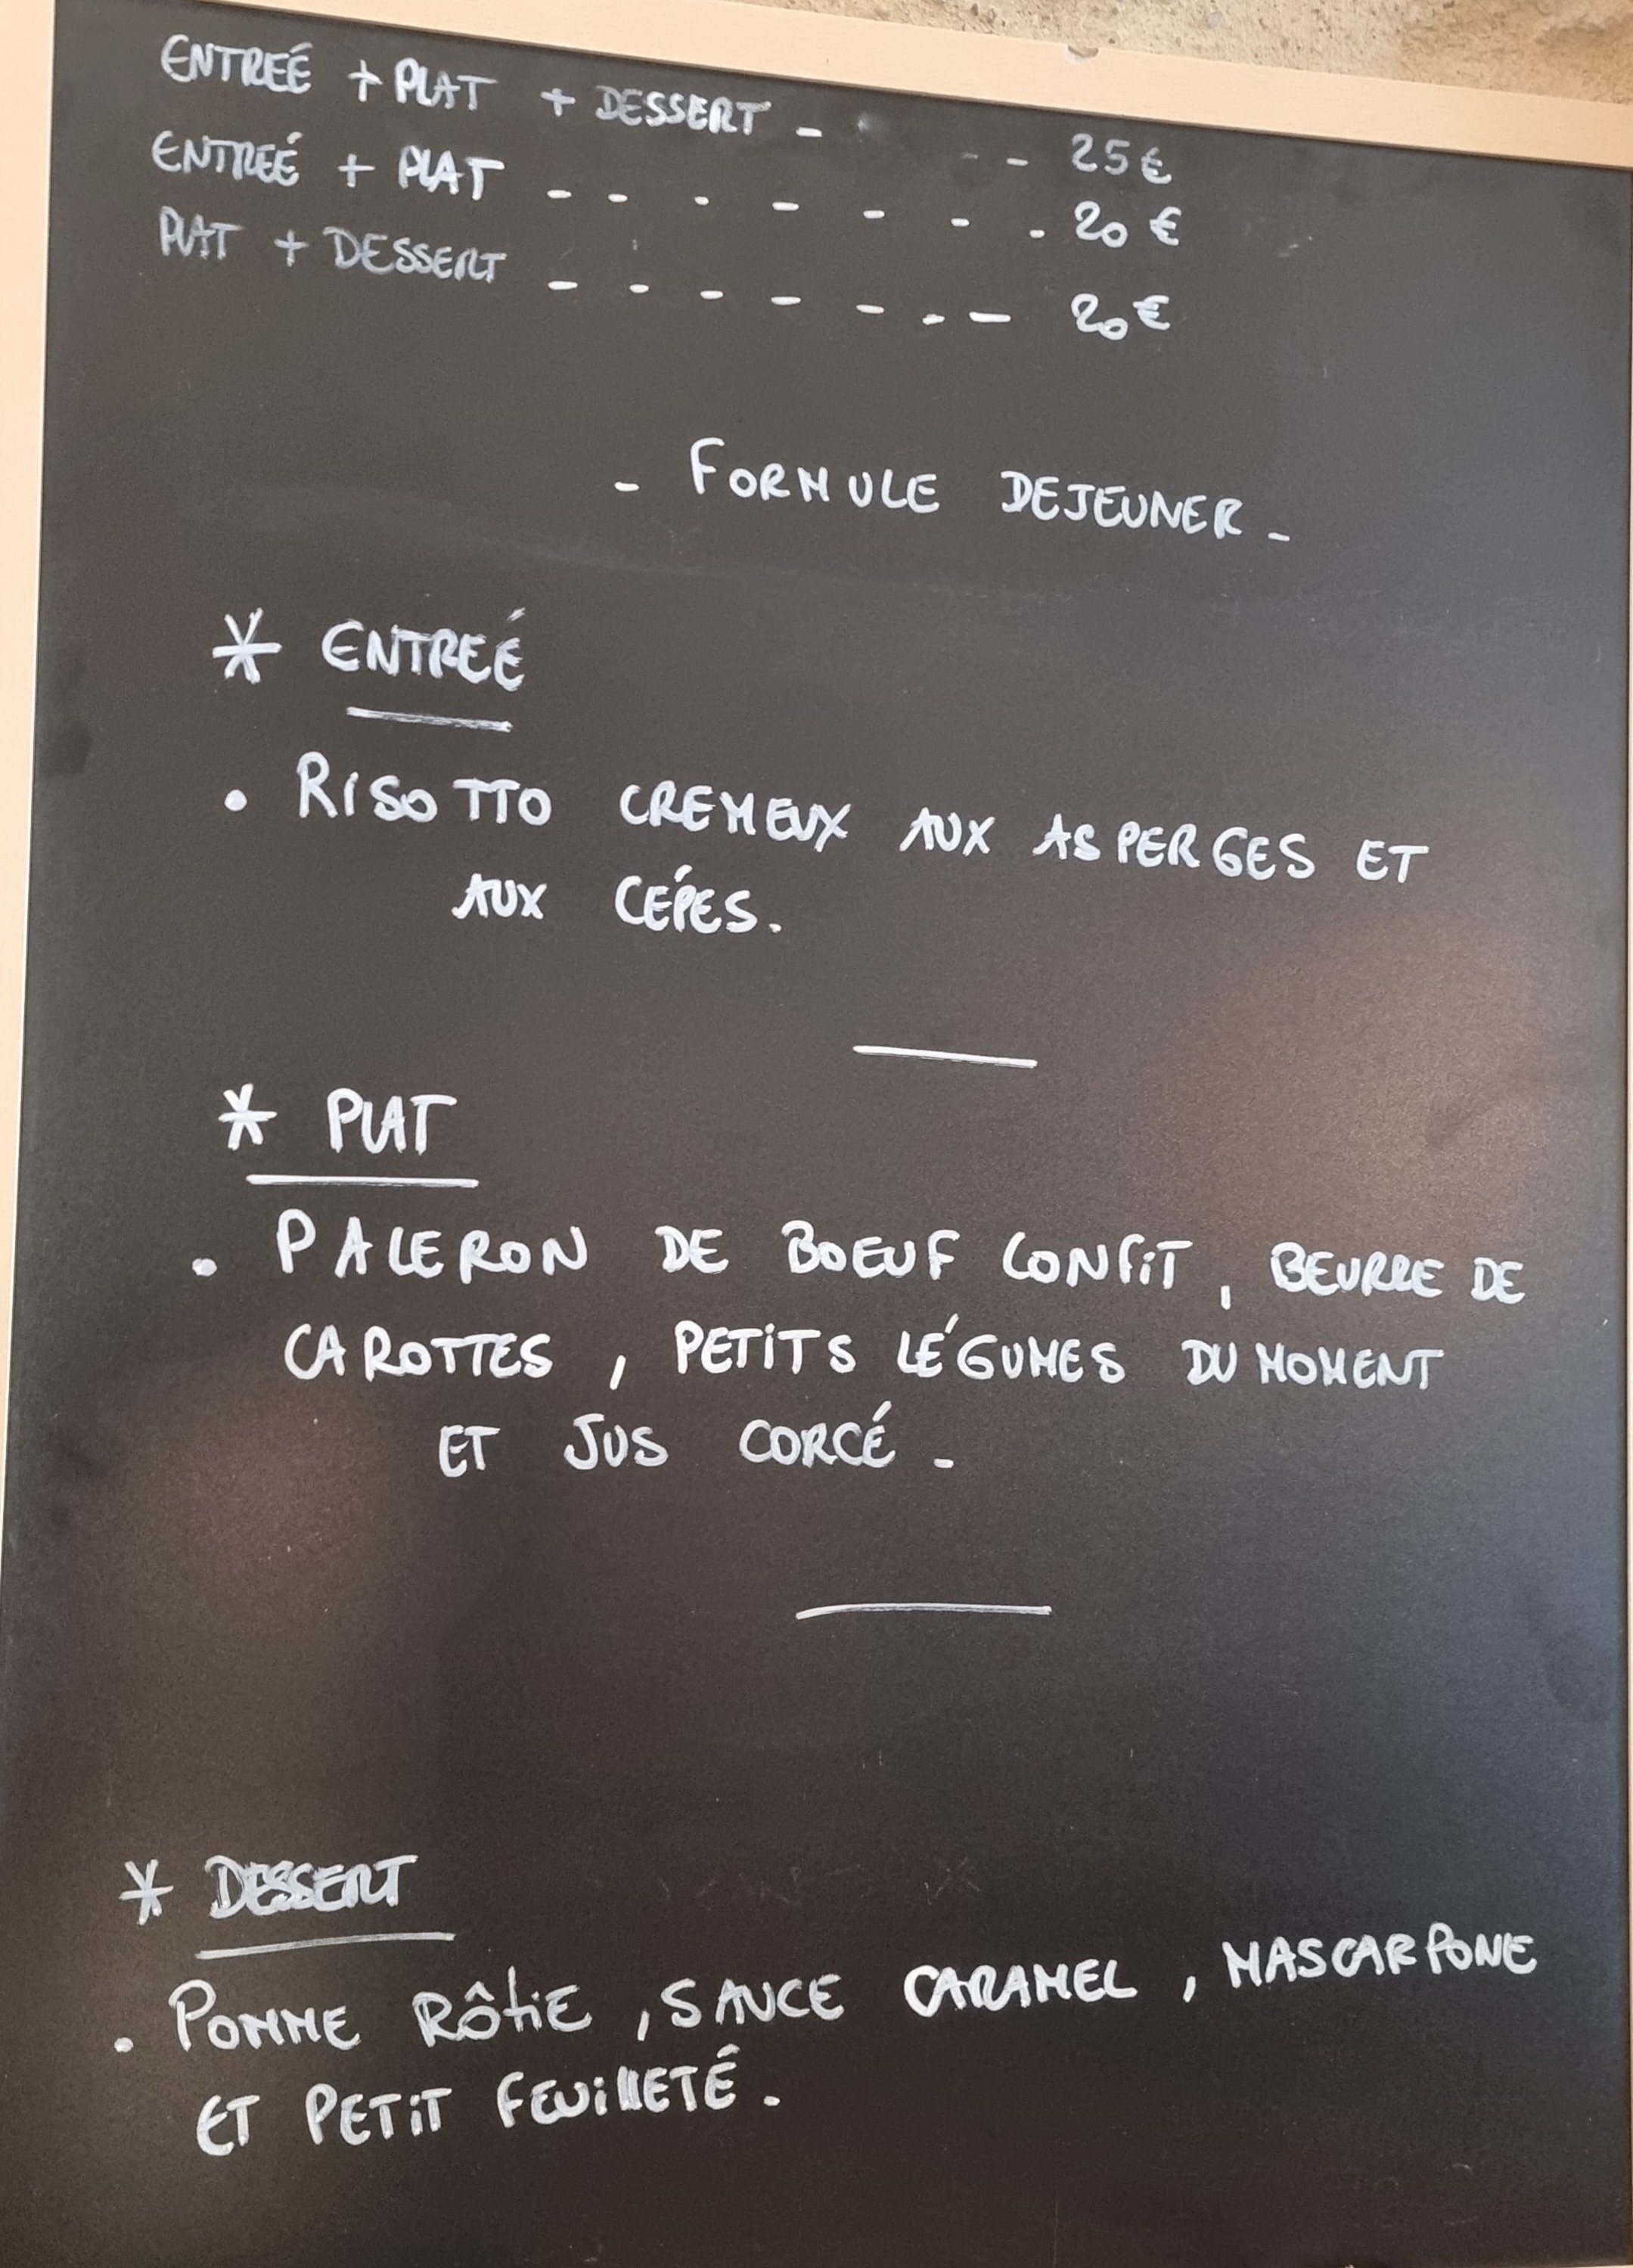 ENTREÉ + PLAT + DESSERT - - - 25€
ENTREÉ + PLAT - - - - - - - 20 €
PLAT + DESSERT - - - - - - - 20€
- FORMULE DEJEUNER -
* ENTREÉ
• RISOTTO CREMEUX AUX ASPERGES ET
AUX CÉPES.
* PLAT
• PALERON DE BOEUF CONFIT, BEURRE DE
CAROTTES, PETITS LÉGUMES DU MOMENT
ET JUS CORCÉ -
* DESSERT
• POMME RÔTIE, SAUCE CARAMEL, MASCARPONE
ET PETIT FEUILLETÉ.